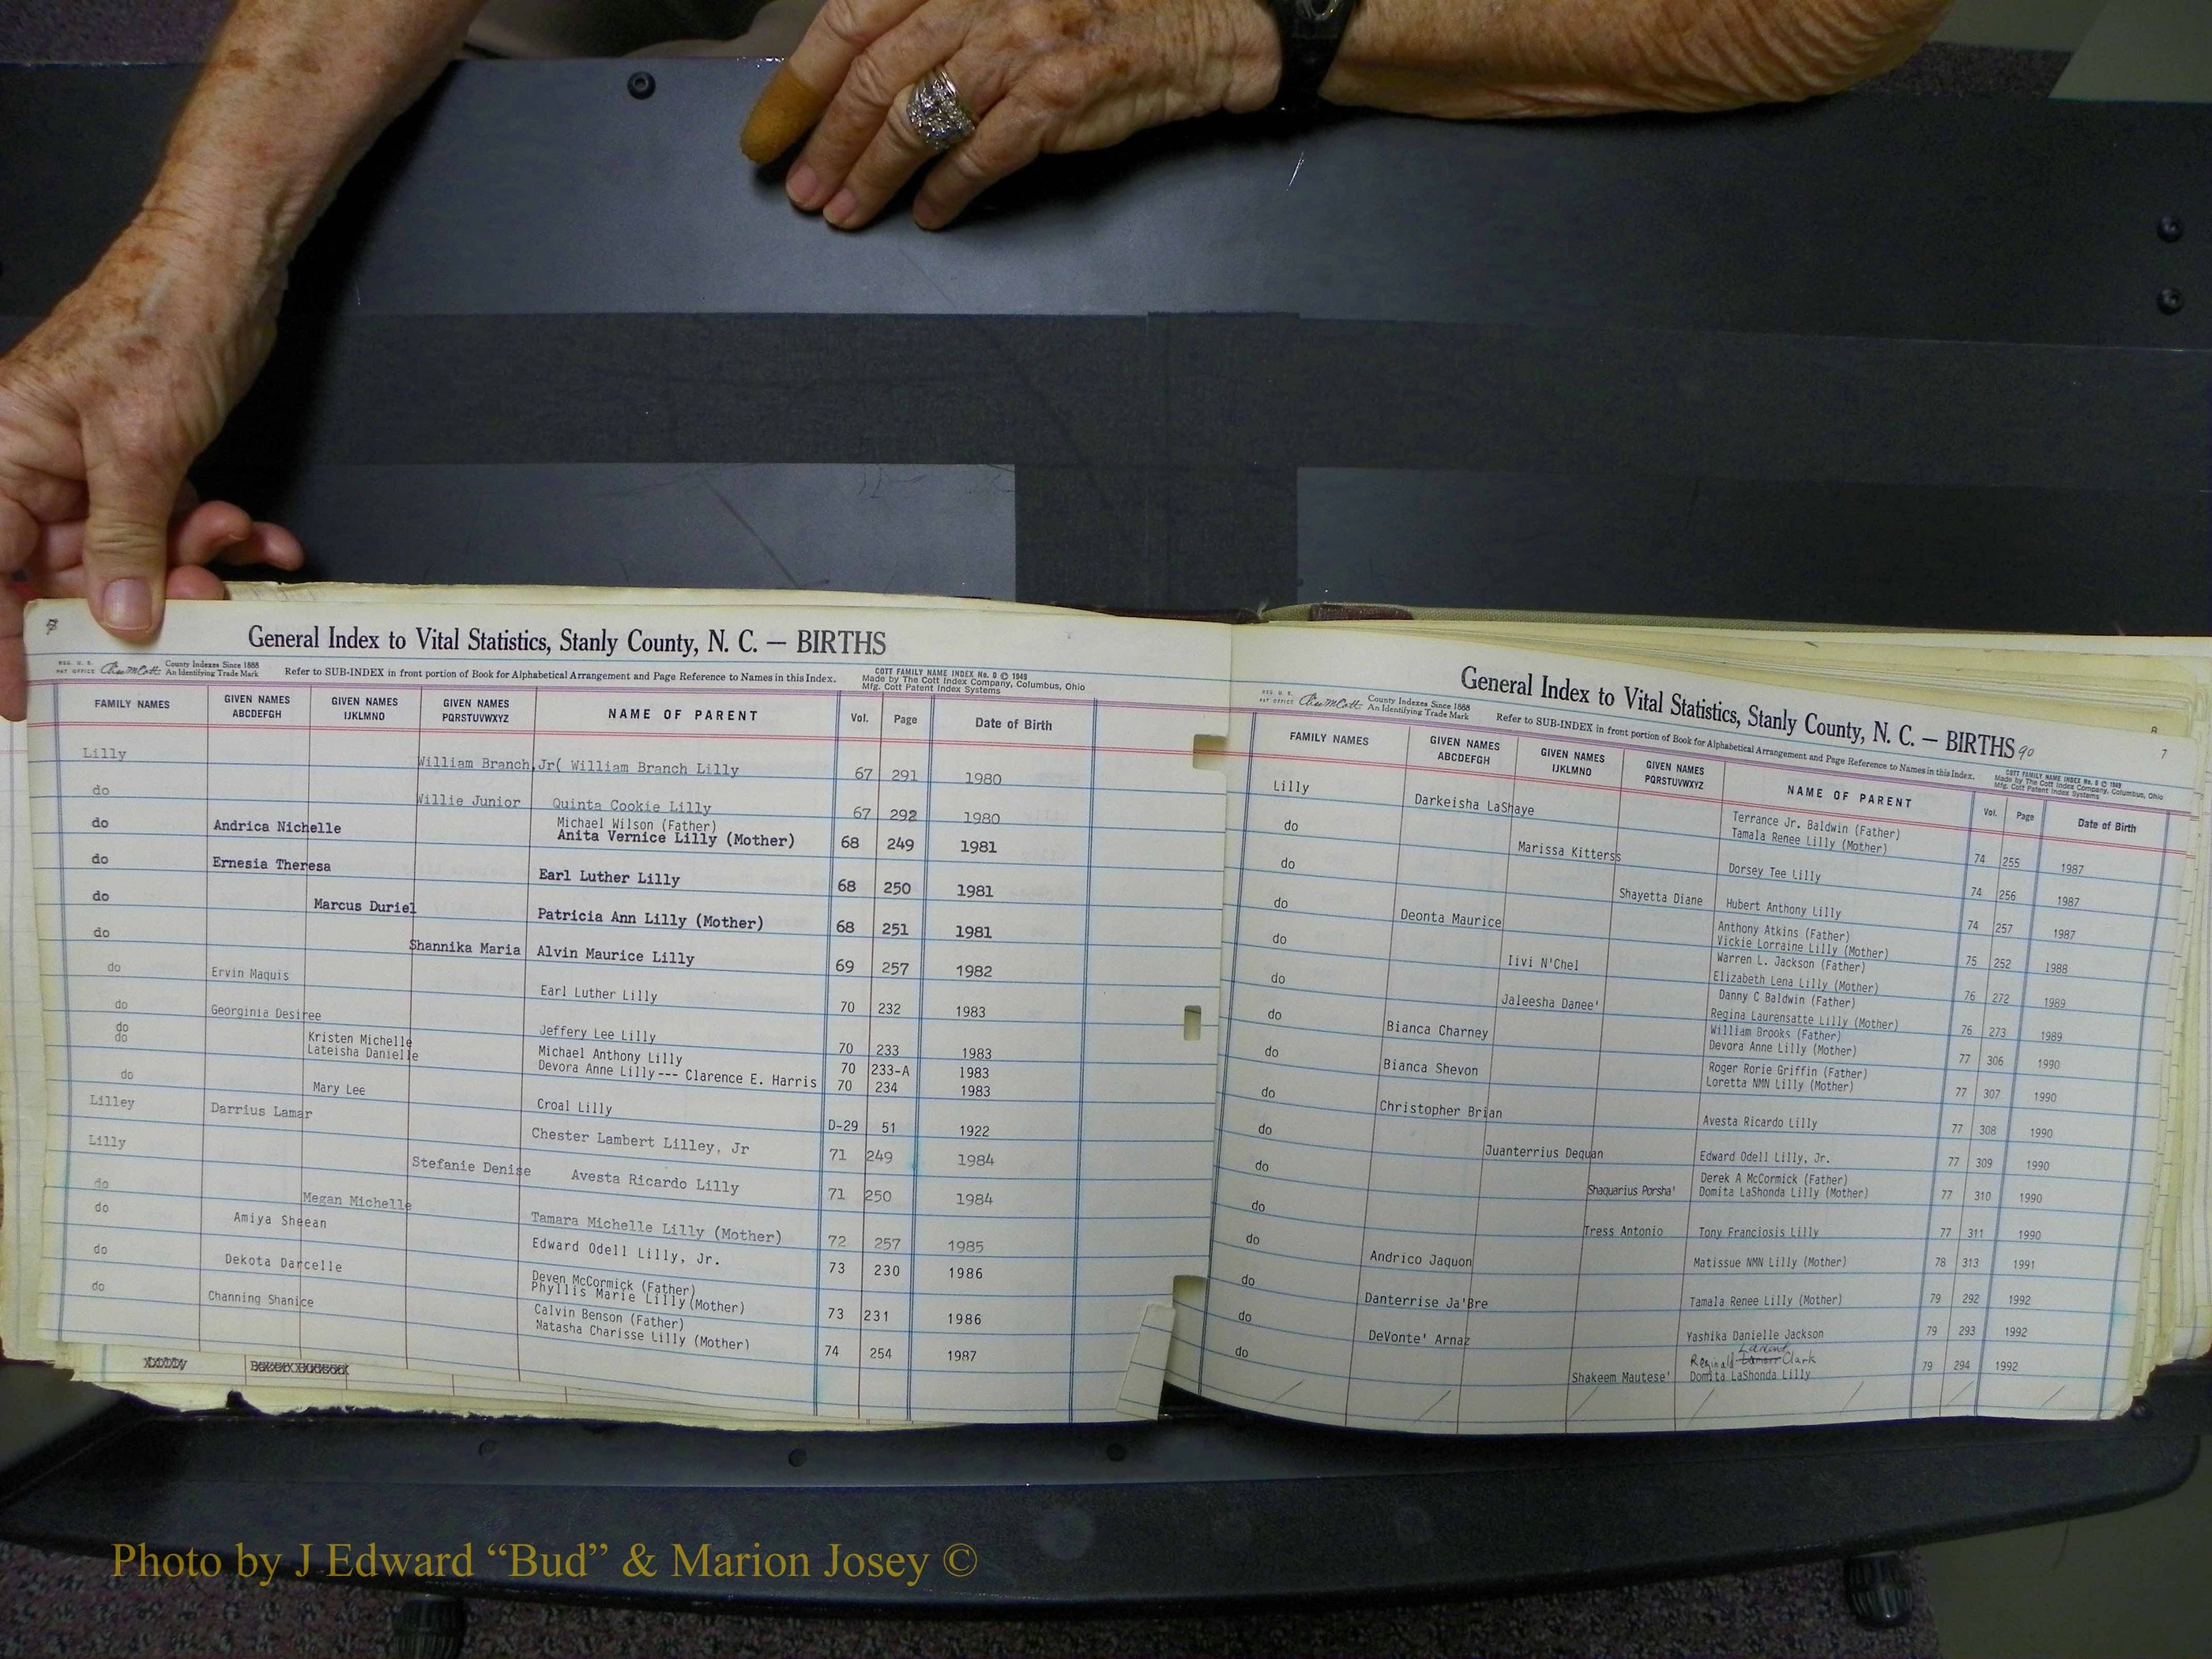 7
General Index to Vital Statistics, Stanly County, N. C. — BIRTHS
REG. U. S. PAT OFFICE
County Indexes Since 1888
An Identifying Trade Mark
Refer to SUB-INDEX in front portion of Book for Alphabetical Arrangement and Page Reference to Names in this Index.
COTT FAMILY NAME INDEX No. 8 © 1949
Made by The Cott Index Company, Columbus, Ohio
Mfg. Cott Patent Index Systems
FAMILY NAMES GIVEN NAMES ABCDEFGH GIVEN NAMES IJKLMNO GIVEN NAMES PQRSTUVWXYZ NAME OF PARENT Vol. Page Date of Birth
Lilly William Branch,Jr( William Branch Lilly 67 291 1980
do Willie Junior Quinta Cookie Lilly 67 292 1980
do Andrica Nichelle Michael Wilson (Father)
Anita Vernice Lilly (Mother) 68 249 1981
do Ernesia Theresa Earl Luther Lilly 68 250 1981
do Marcus Duriel Patricia Ann Lilly (Mother) 68 251 1981
do Shannika Maria Alvin Maurice Lilly 69 257 1982
do Ervin Maquis Earl Luther Lilly 70 232 1983
do Georginia Desiree Jeffery Lee Lilly 70 233 1983
do Kristen Michelle Michael Anthony Lilly 70 233-A 1983
do Lateisha Danielle Devora Anne Lilly--- Clarence E. Harris 70 234 1983
do Mary Lee Croal Lilly D-29 51 1922
Lilley Darrius Lamar Chester Lambert Lilley, Jr 71 249 1984
Lilly Stefanie Denise Avesta Ricardo Lilly 71 250 1984
do Megan Michelle Tamara Michelle Lilly (Mother) 72 257 1985
do Amiya Sheean Edward Odell Lilly, Jr. 73 230 1986
do Dekota Darcelle Deven McCormick (Father)
Phyllis Marie Lilly (Mother) 73 231 1986
do Channing Shanice Calvin Benson (Father)
Natasha Charisse Lilly (Mother) 74 254 1987
8
General Index to Vital Statistics, Stanly County, N. C. — BIRTHS 90
7
REG. U. S. PAT OFFICE
County Indexes Since 1888
An Identifying Trade Mark
Refer to SUB-INDEX in front portion of Book for Alphabetical Arrangement and Page Reference to Names in this Index.
COTT FAMILY NAME INDEX No. 8 © 1949
Made by The Cott Index Company, Columbus, Ohio
Mfg. Cott Patent Index Systems
FAMILY NAMES GIVEN NAMES ABCDEFGH GIVEN NAMES IJKLMNO GIVEN NAMES PQRSTUVWXYZ NAME OF PARENT Vol. Page Date of Birth
Lilly Darkeisha LaShaye Terrance Jr. Baldwin (Father)
Tamala Renee Lilly (Mother) 74 255 1987
do Marissa Kitterss Dorsey Tee Lilly 74 256 1987
do Shayetta Diane Hubert Anthony Lilly 74 257 1987
do Deonta Maurice Anthony Atkins (Father)
Vickie Lorraine Lilly (Mother) 75 252 1988
do Iivi N'Chel Warren L. Jackson (Father)
Elizabeth Lena Lilly (Mother) 76 272 1989
do Jaleesha Danee' Danny C Baldwin (Father)
Regina Laurensatte Lilly (Mother) 76 273 1989
do Bianca Charney William Brooks (Father)
Devora Anne Lilly (Mother) 77 306 1990
do Bianca Shevon Roger Rorie Griffin (Father)
Loretta NMN Lilly (Mother) 77 307 1990
do Christopher Brian Avesta Ricardo Lilly 77 308 1990
do Juanterrius Dequan Edward Odell Lilly, Jr. 77 309 1990
do Shaquarius Porsha' Derek A McCormick (Father)
Domita LaShonda Lilly (Mother) 77 310 1990
do Tress Antonio Tony Franciosis Lilly 77 311 1990
do Andrico Jaquon Matissue NMN Lilly (Mother) 78 313 1991
do Danterrise Ja'Bre Tamala Renee Lilly (Mother) 79 292 1992
do DeVonte' Arnaz Yashika Danielle Jackson 79 293 1992
do Shakeem Mautese' Reginald Clark
Domita LaShonda Lilly 79 294 1992
Photo by J Edward “Bud” & Marion Josey ©